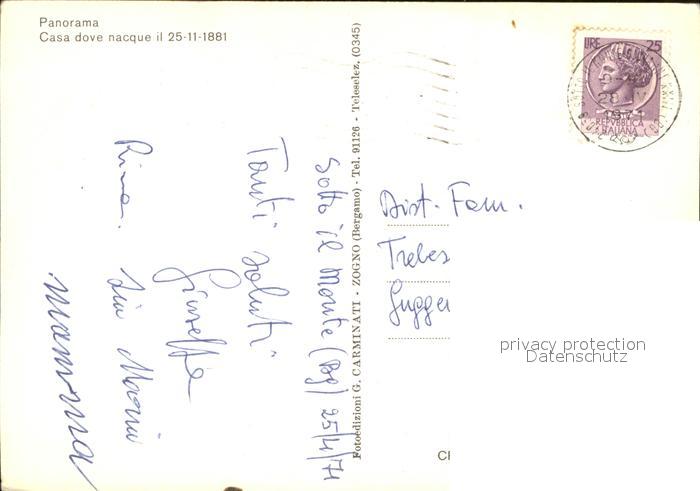 Panorama
Casa dove nacque il 25-11-1881
Fotoedizioni G. CARMINATI - ZOGNO (Bergamo) - Tel. 91126 - Teleselez. (0345)
Sotto il Monte (Bg) 25/4/71
Tanti saluti
Giuseppe
Zia Maria
mamma
LIRE 25
REPVBBLICA
ITALIANA
Dist. Fam.
privacy protection
Datenschutz